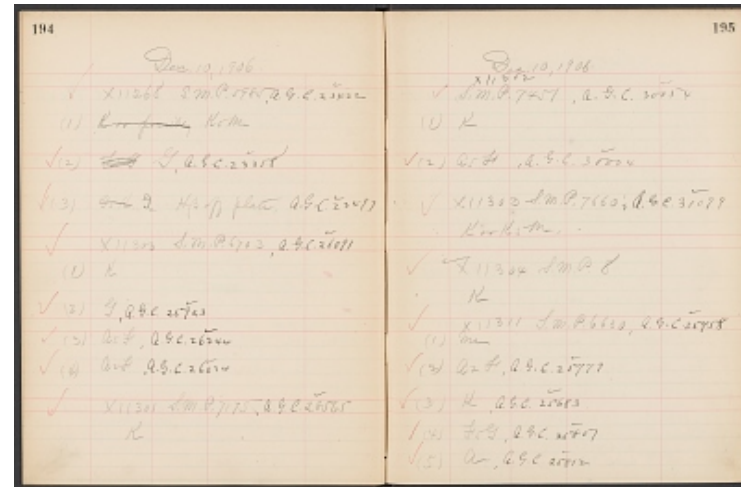 194
Dec. 10, 1906.
X11268 S.M.P. 6965, A.G.C. 23422
(1) K or M
(2) G, A.G.C. 23358
(3) G. Hf. off plate. A.G.C. 23497
X11300 S.M.P. 6703, A.G.C. 26091
(1) K
(2) G, A.G.C. 25963
(3) A or F, A.G.C. 26244
(4) A or F, A.G.C. 26024
X11301 S.M.P. 7175, A.G.C. 28565
K
195
Dec. 10, 1906.
X11302
S.M.P. 7457, A.G.C. 30054
(1) K
(2) A or F, A.G.C. 30004
X11303 S.M.P. 7660, A.G.C. 31099
K or K to M.
X11304 S.M.P. 8
K
X11311 S.M.P. 6630, A.G.C. 25758
(1) Ma
(2) A or F, A.G.C. 25779
(3) K, A.G.C. 25683
(4) F or G, A.G.C. 25807
(5) A, A.G.C. 25802